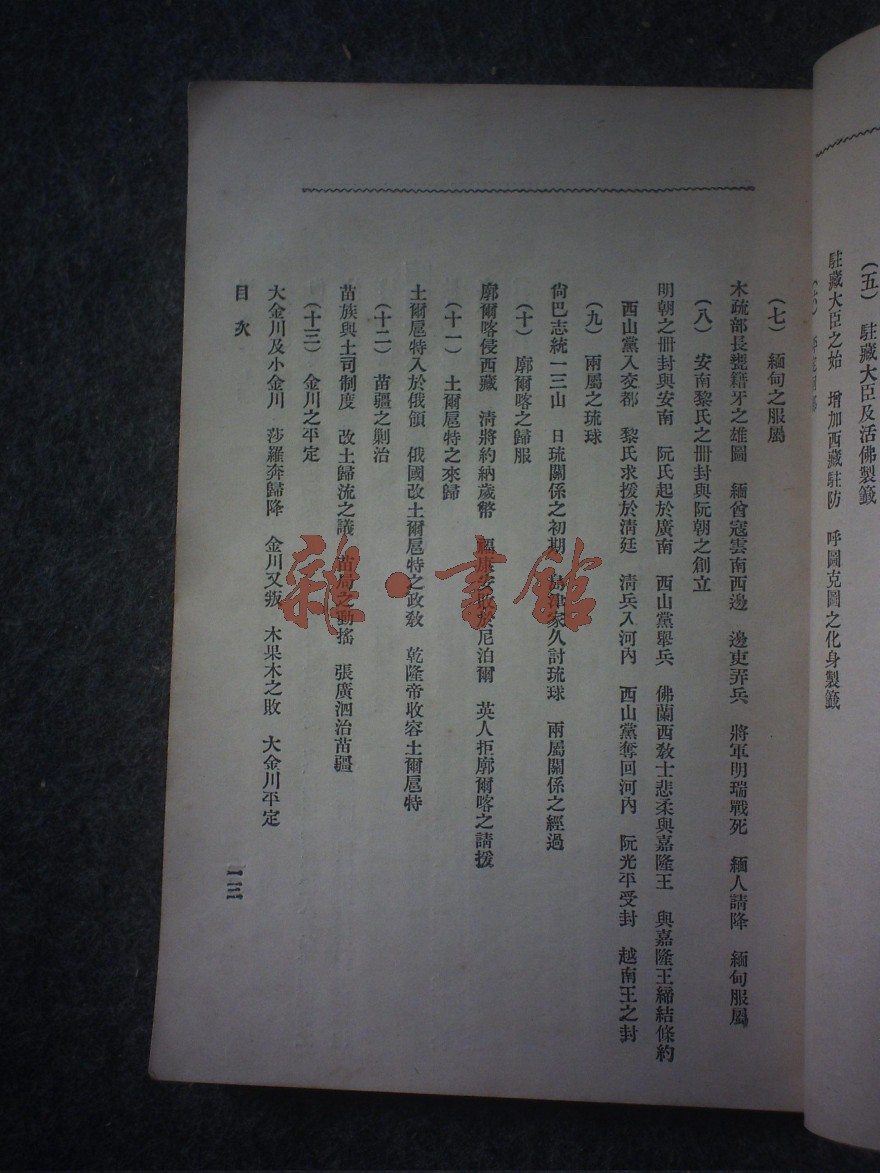 （五）　駐藏大臣及活佛製籤
駐藏大臣之始　增加西藏駐防　呼圖克圖之化身製籤
（七）　緬甸之服屬
木疏部長甕籍牙之雄圖　緬酋寇雲南西邊　邊吏弄兵　將軍明瑞戰死　緬人請降　緬甸服屬
（八）　安南黎氏之冊封與阮朝之創立
明朝之冊封與安南　阮氏起於廣南　西山黨舉兵　佛蘭西敎士悲柔與嘉隆王　與嘉隆王締結條約
西山黨入交都　黎氏求援於淸廷　淸兵入河內　西山黨奪回河內　阮光平受封　越南王之封
（九）　兩屬之琉球
尙巴志統一三山　日琉關係之初期　島津家久討琉球　兩屬關係之經過
（十）　廓爾喀之歸服
廓爾喀侵西藏　淸將約納歲幣　福康安敗於尼泊爾　英人拒廓爾喀之請援
（十一）　土爾扈特之來歸
土爾扈特入於俄領　俄國改土爾扈特之政敎　乾隆帝收容土爾扈特
（十二）　苗疆之剿治
苗族與土司制度　改土歸流之議　苗局之動搖　張廣泗治苗疆
（十三）　金川之平定
大金川及小金川　莎羅奔歸降　金川又叛　木果木之敗　大金川平定
目次
一三
雜·書館